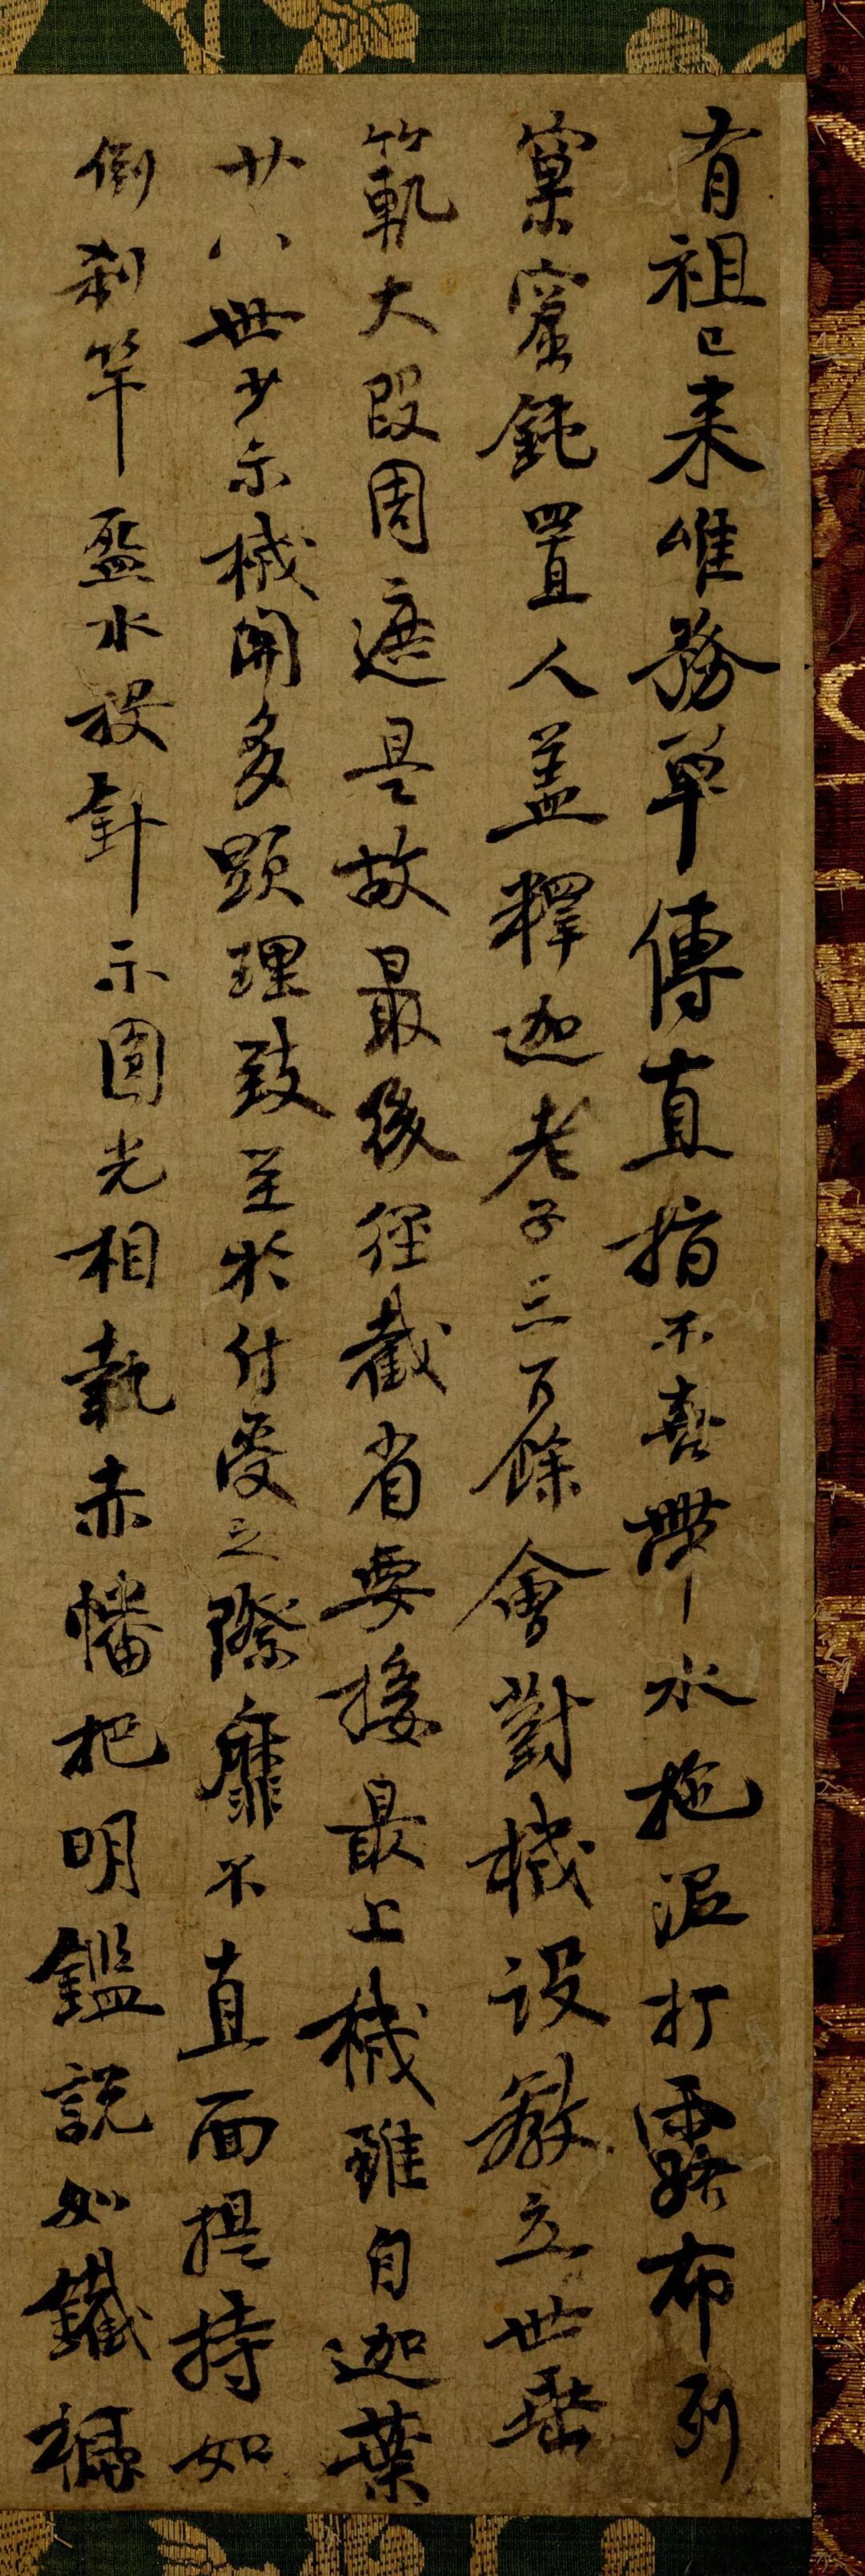 有祖已来唯務單傳直指不喜帶水拖泥打露布列
窠窟鈍置人盖釋迦老子三百餘會對機設教立世垂
範軌大段周遮是故最後徑截省要接最上機雖自迦葉
廿八世少示機關多顯理致至於付受之際靡不直面提持如
倒刹竿盔水投針示圓光相執赤幡把明鑑説如鐵橛